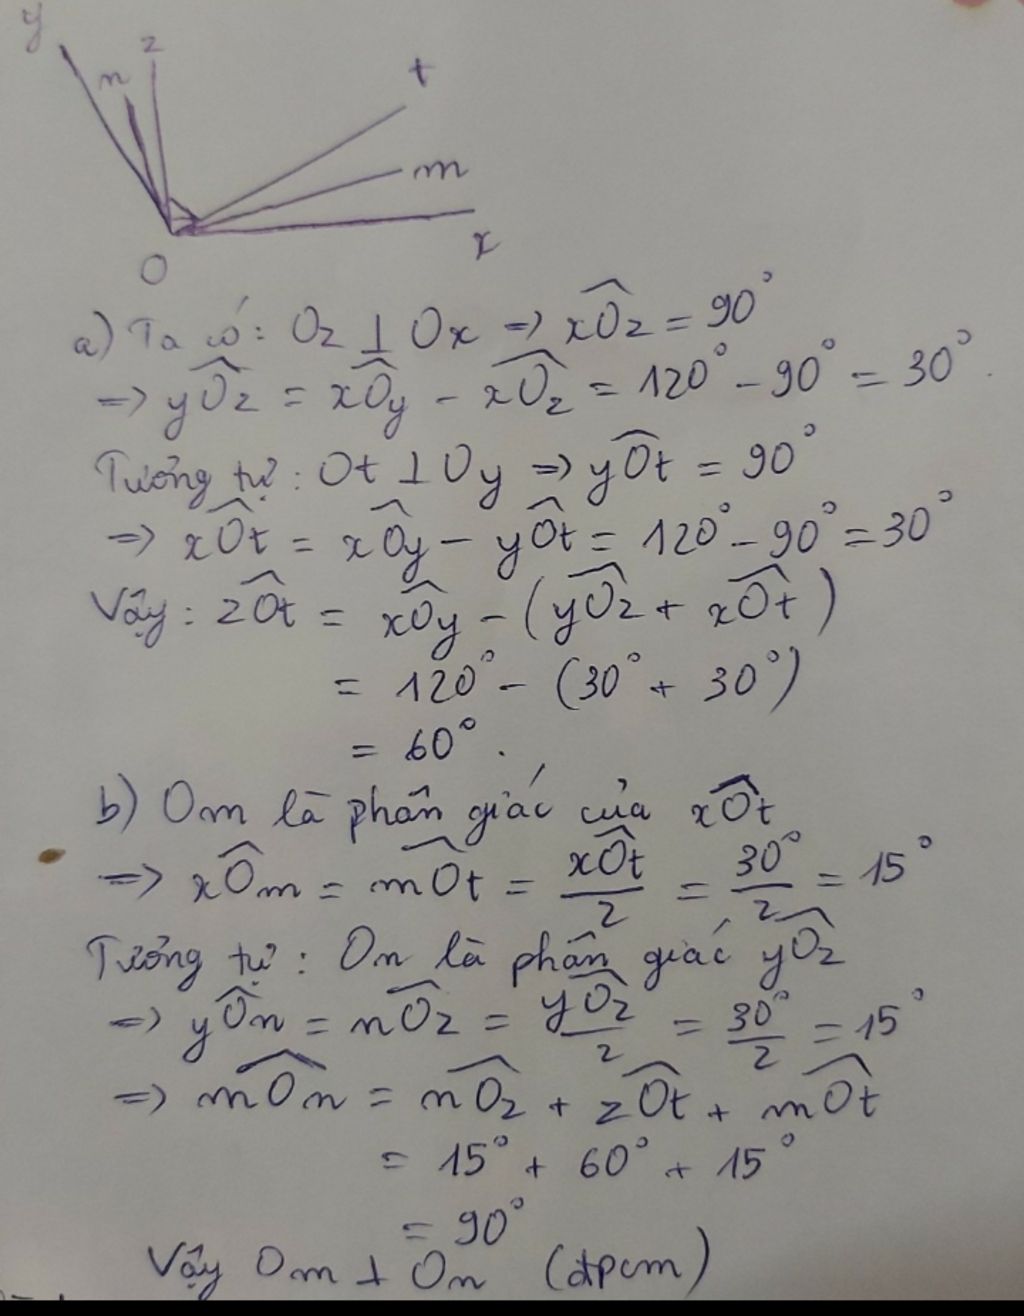 y
z
n
t
m
x
O
a) Ta có: Oz ⊥ Ox => xÔz = 90°
=> yÔz = xÔy - xÔz = 120° - 90° = 30°.
Tương tự: Ot ⊥ Oy => yÔt = 90°
=> xÔt = xÔy - yÔt = 120° - 90° = 30°
Vậy: zÔt = xÔy - (yÔz + xÔt)
= 120° - (30° + 30°)
= 60°.
b) Om là phân giác của xÔt
=> xÔm = mÔt = xÔt/2 = 30°/2 = 15°
Tương tự: On là phân giác yÔz
=> yÔn = nÔz = yÔz/2 = 30°/2 = 15°
=> mÔn = nÔz + zÔt + mÔt
= 15° + 60° + 15°
= 90°
Vậy Om ⊥ On (đpcm)